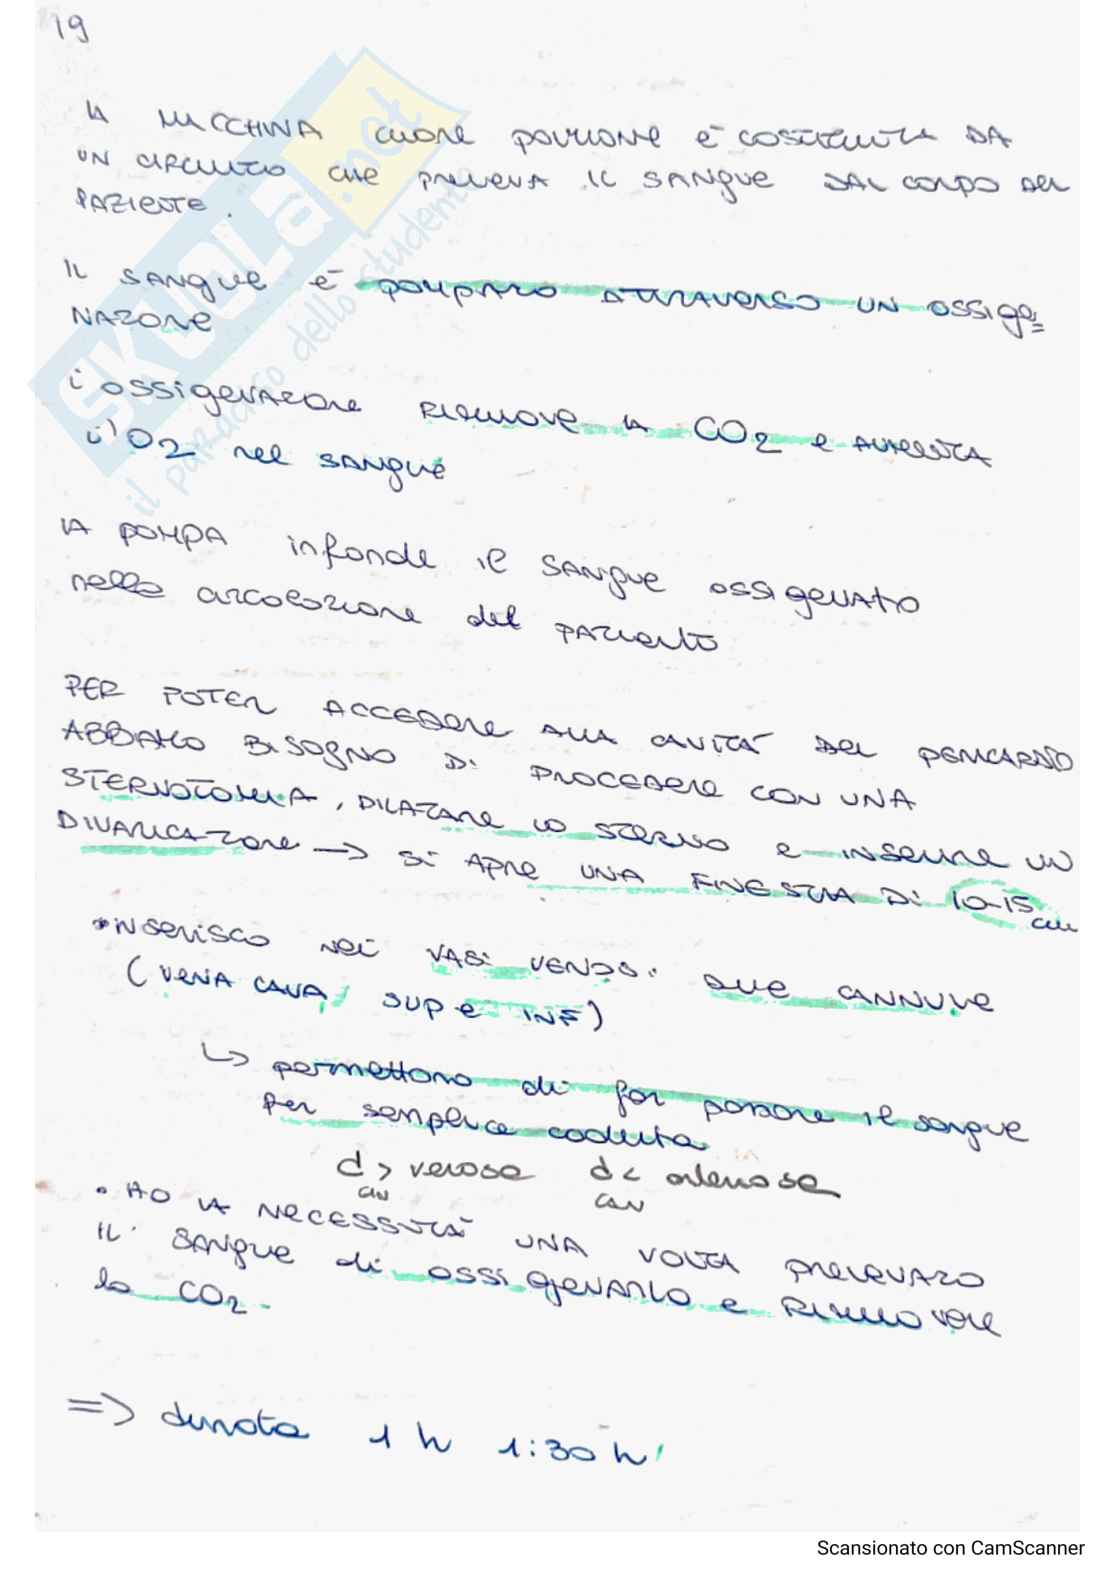 19
LA MACCHINA CUORE POLMONE È COSTITUITA DA
UN CIRCUITO CHE PRELEVA IL SANGUE DAL CORPO DEL
PAZIENTE.
IL SANGUE È POMPATO ATTRAVERSO UN OSSIGE=
NATORE
L'OSSIGENATORE RIMUOVE LA CO2 E AUMENTA
L'O2 nel SANGUE
LA POMPA infonde il SANGUE OSSIGENATO
nella circolazione del PAZIENTE
PER POTER ACCEDERE ALLA CAVITÀ DEL PERICARDIO
ABBIAMO BISOGNO DI PROCEDERE CON UNA
STERNOTOMIA, DILATARE LO STERNO E INSERIRE UN
DIVARICATORE → SI APRE UNA FINESTRA DI 10-15 cm
•INSERISCO NEI VASI VENOSI DUE CANNULE
(VENA CAVA, SUP E INF)
↳ permettono di far passare il sangue
Per semplice caduta
d > venosa d < arteriosa
can can
• HO LA NECESSITÀ UNA VOLTA PRELEVATO
IL SANGUE di OSSIGENARLO E RIMUOVERE
la CO2.
=> durata 1 h 1:30 h
SKUOLA.net
il paradiso dello studente
Scansionato con CamScanner